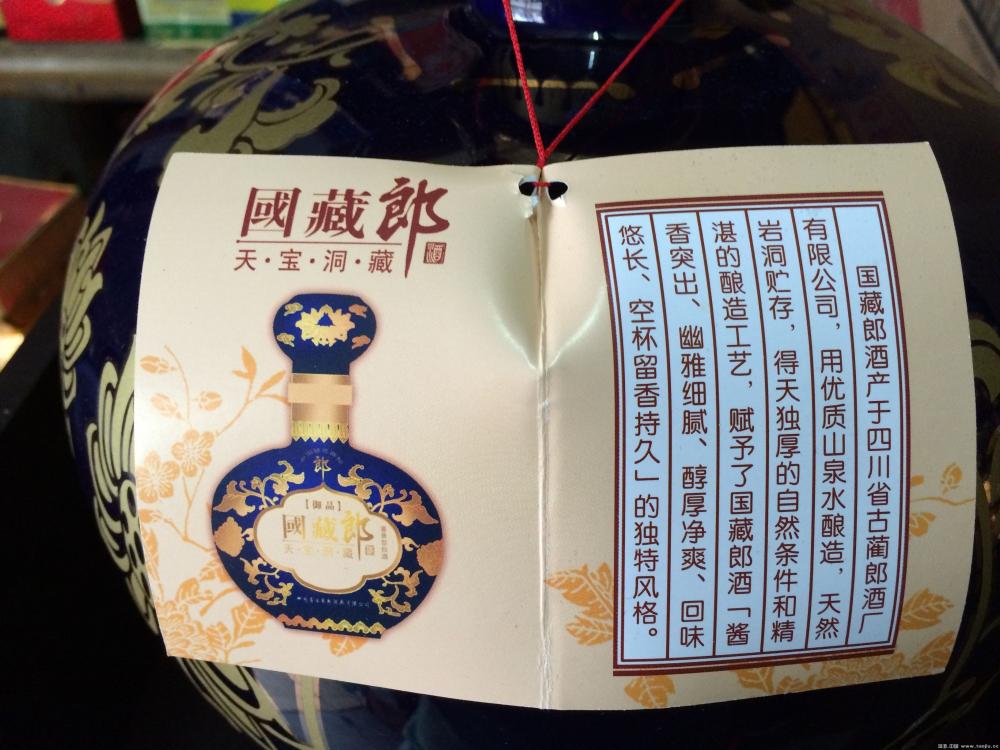 國藏郎
酒
天·宝·洞·藏
郎
【御品】
國藏郎
天·宝·洞·藏
国藏郎酒产于四川省古蔺郎酒厂
有限公司，用优质山泉水酿造，天然
岩洞贮存，得天独厚的自然条件和精
湛的酿造工艺，赋予了国藏郎酒「酱
香突出、幽雅细腻、醇厚净爽、回味
悠长、空杯留香持久」的独特风格。